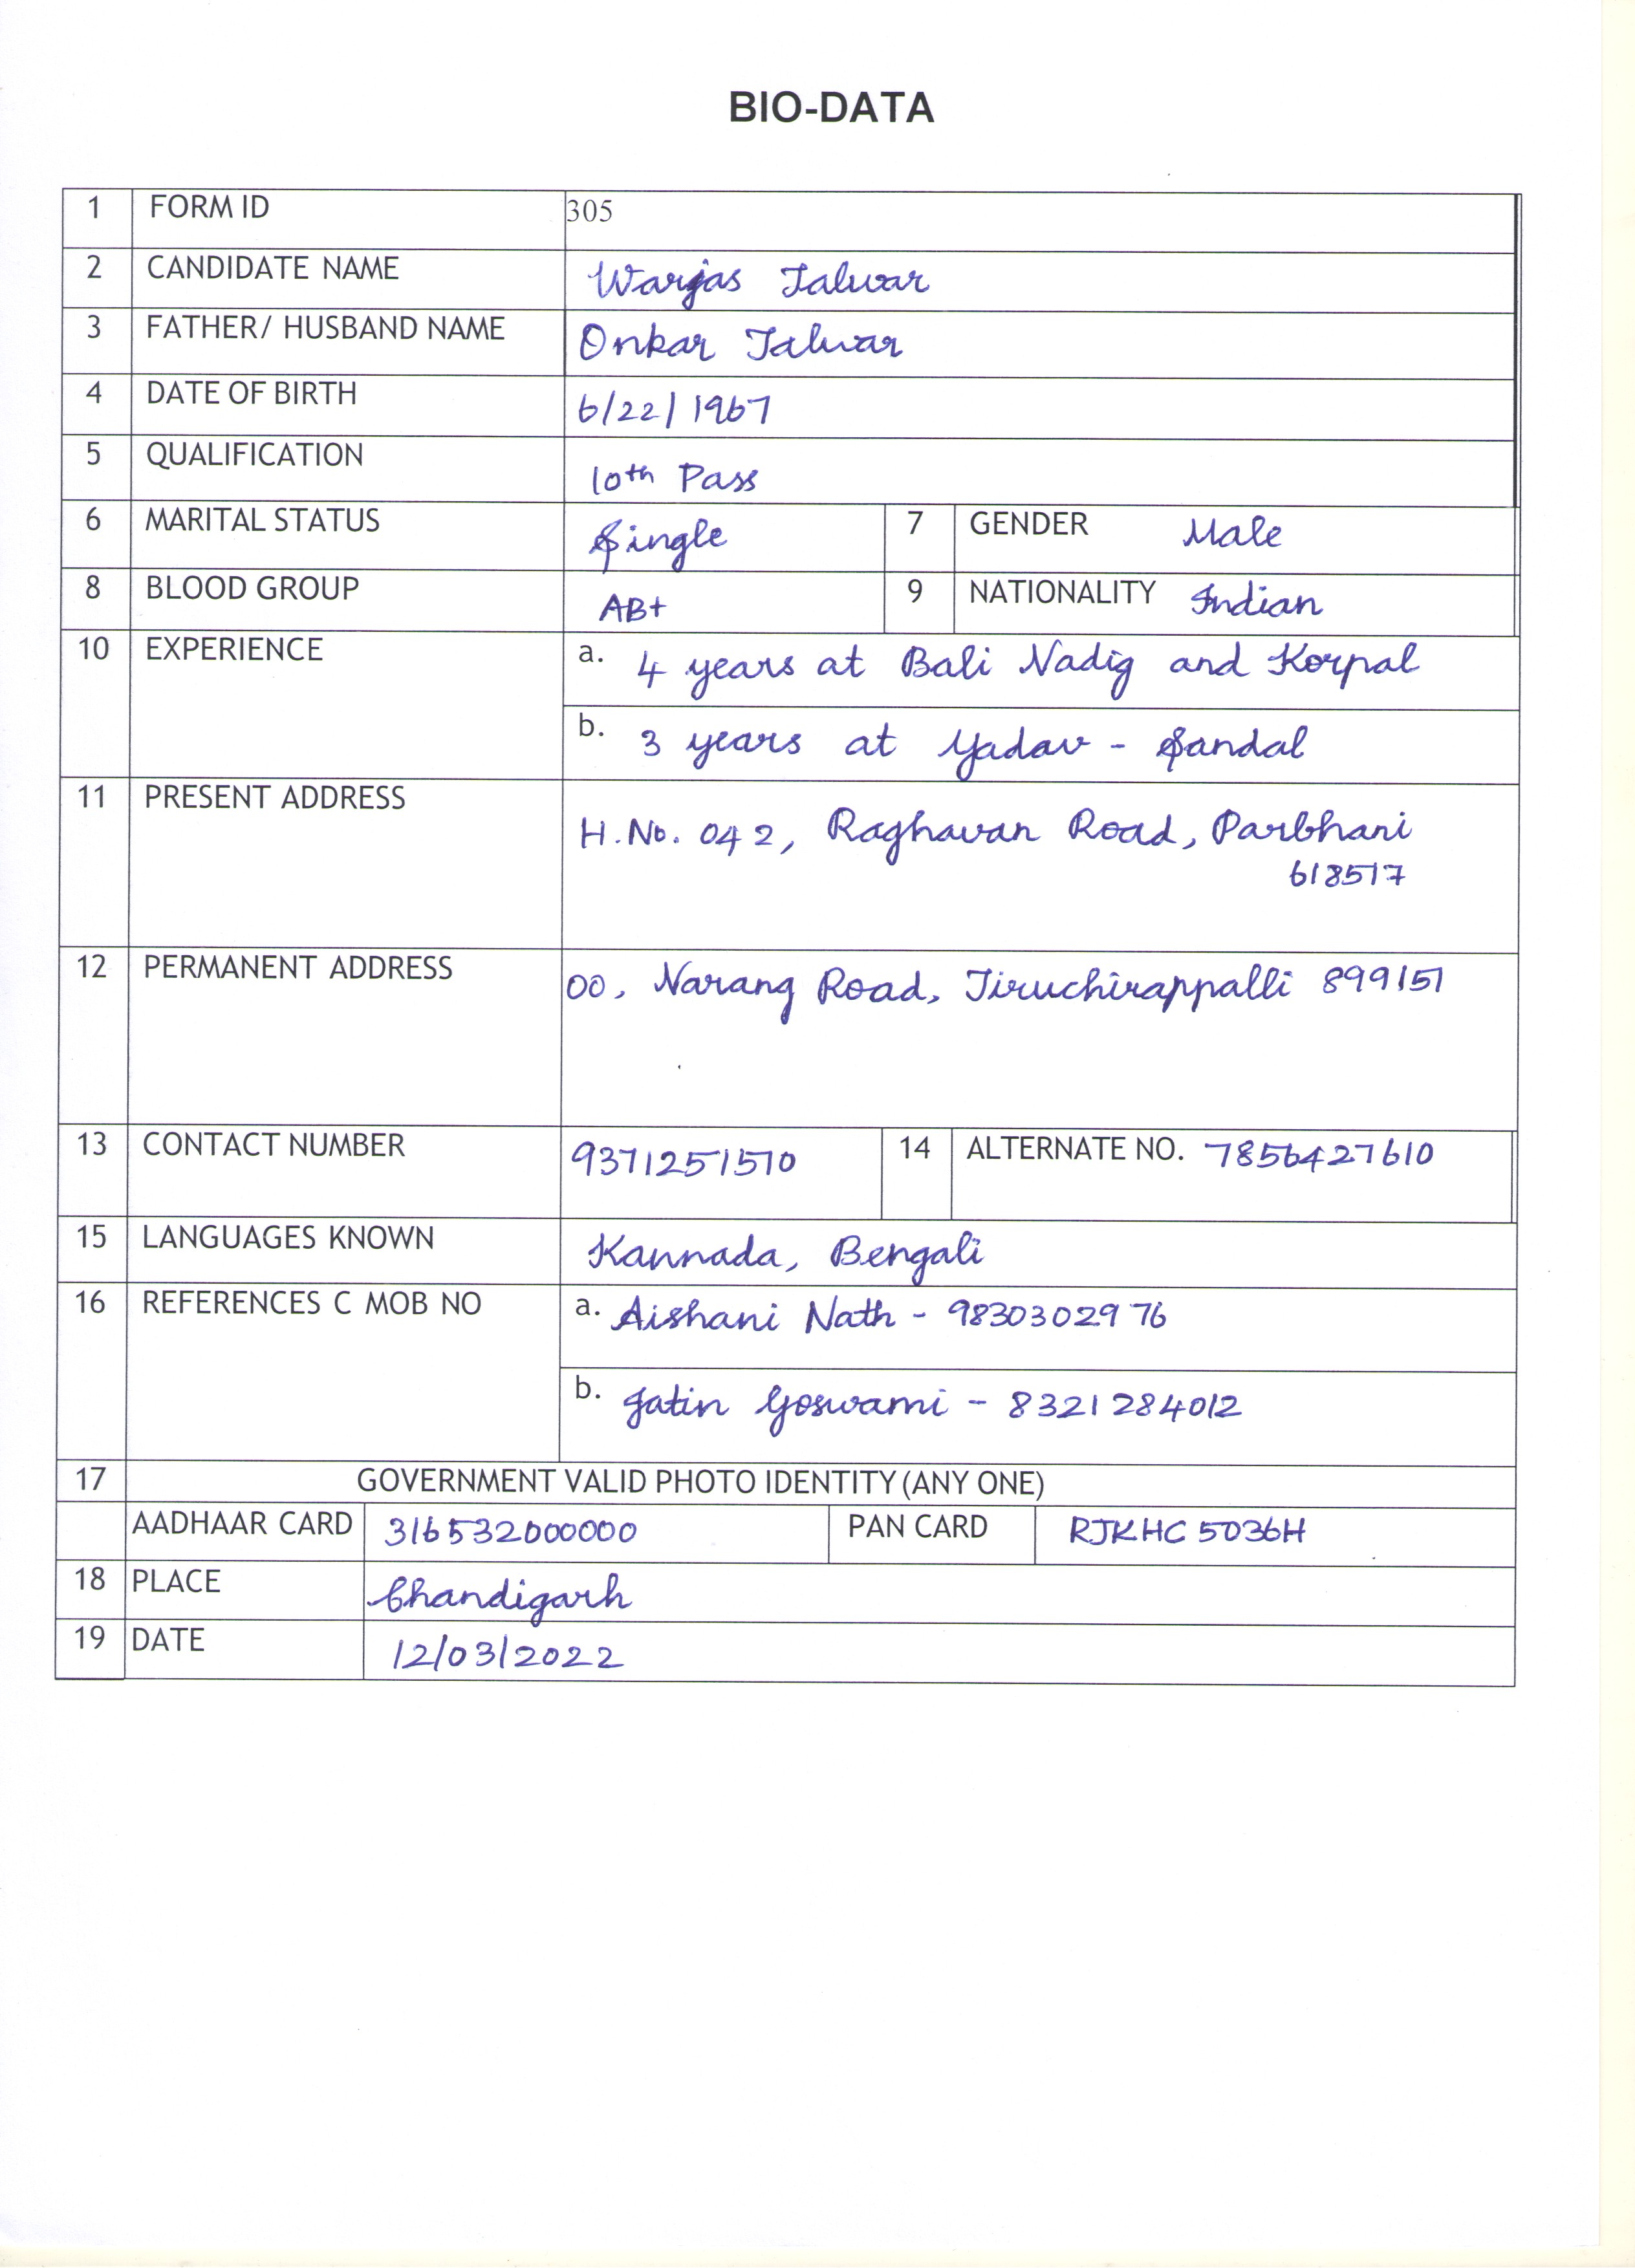 BIO-DATA
1 FORM ID 305
2 CANDIDATE NAME Warjas Talwar
3 FATHER/ HUSBAND NAME Onkar Talwar
4 DATE OF BIRTH 6/22/1967
5 QUALIFICATION 10th Pass
6 MARITAL STATUS Single 7 GENDER Male
8 BLOOD GROUP AB+ 9 NATIONALITY Indian
10 EXPERIENCE a. 4 years at Bali Nadig and Korpal
b. 3 years at Yadav - Sandal
11 PRESENT ADDRESS H.No. 042, Raghavan Road, Parbhani
618517
12 PERMANENT ADDRESS 00, Narang Road, Tiruchirappalli 899151
13 CONTACT NUMBER 9371251510 14 ALTERNATE NO. 7856427610
15 LANGUAGES KNOWN Kannada, Bengali
16 REFERENCES C MOB NO a. Aishani Nath - 9830302976
b. Jatin Goswami - 8321284012
17 GOVERNMENT VALID PHOTO IDENTITY (ANY ONE)
AADHAAR CARD 316532000000 PAN CARD RJKHC5036H
18 PLACE Chandigarh
19 DATE 12/03/2022